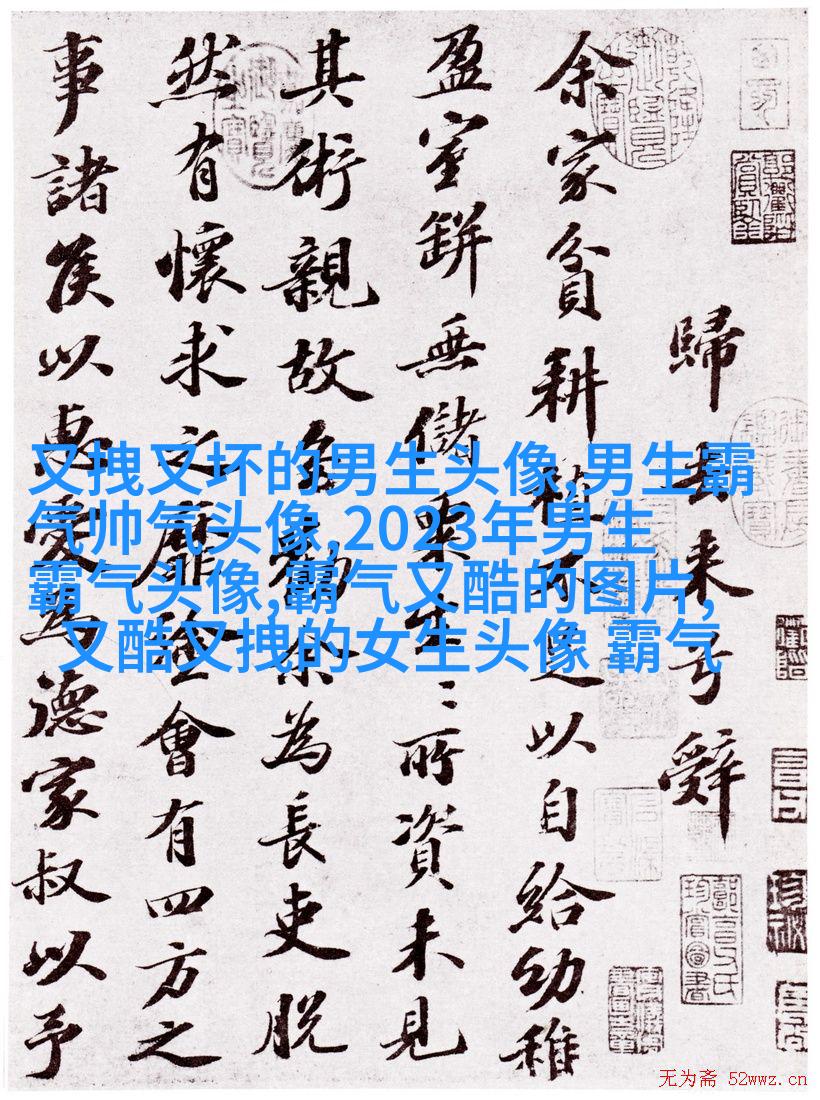 歸去来兮辭
余家貧耕植不足以自給幼稚
盈室缾無儲粟生〻所資未見
其術親故多勸余為長吏脱
然有懷求之靡途會有四方之
事諸侯以惠愛為德家叔以予
又拽又坏的男生头像,男生霸
气帅气头像,2023年男生
霸气头像,霸气又酷的图片,
又酷又拽的女生头像 霸气
无为斋 52wwz.cn